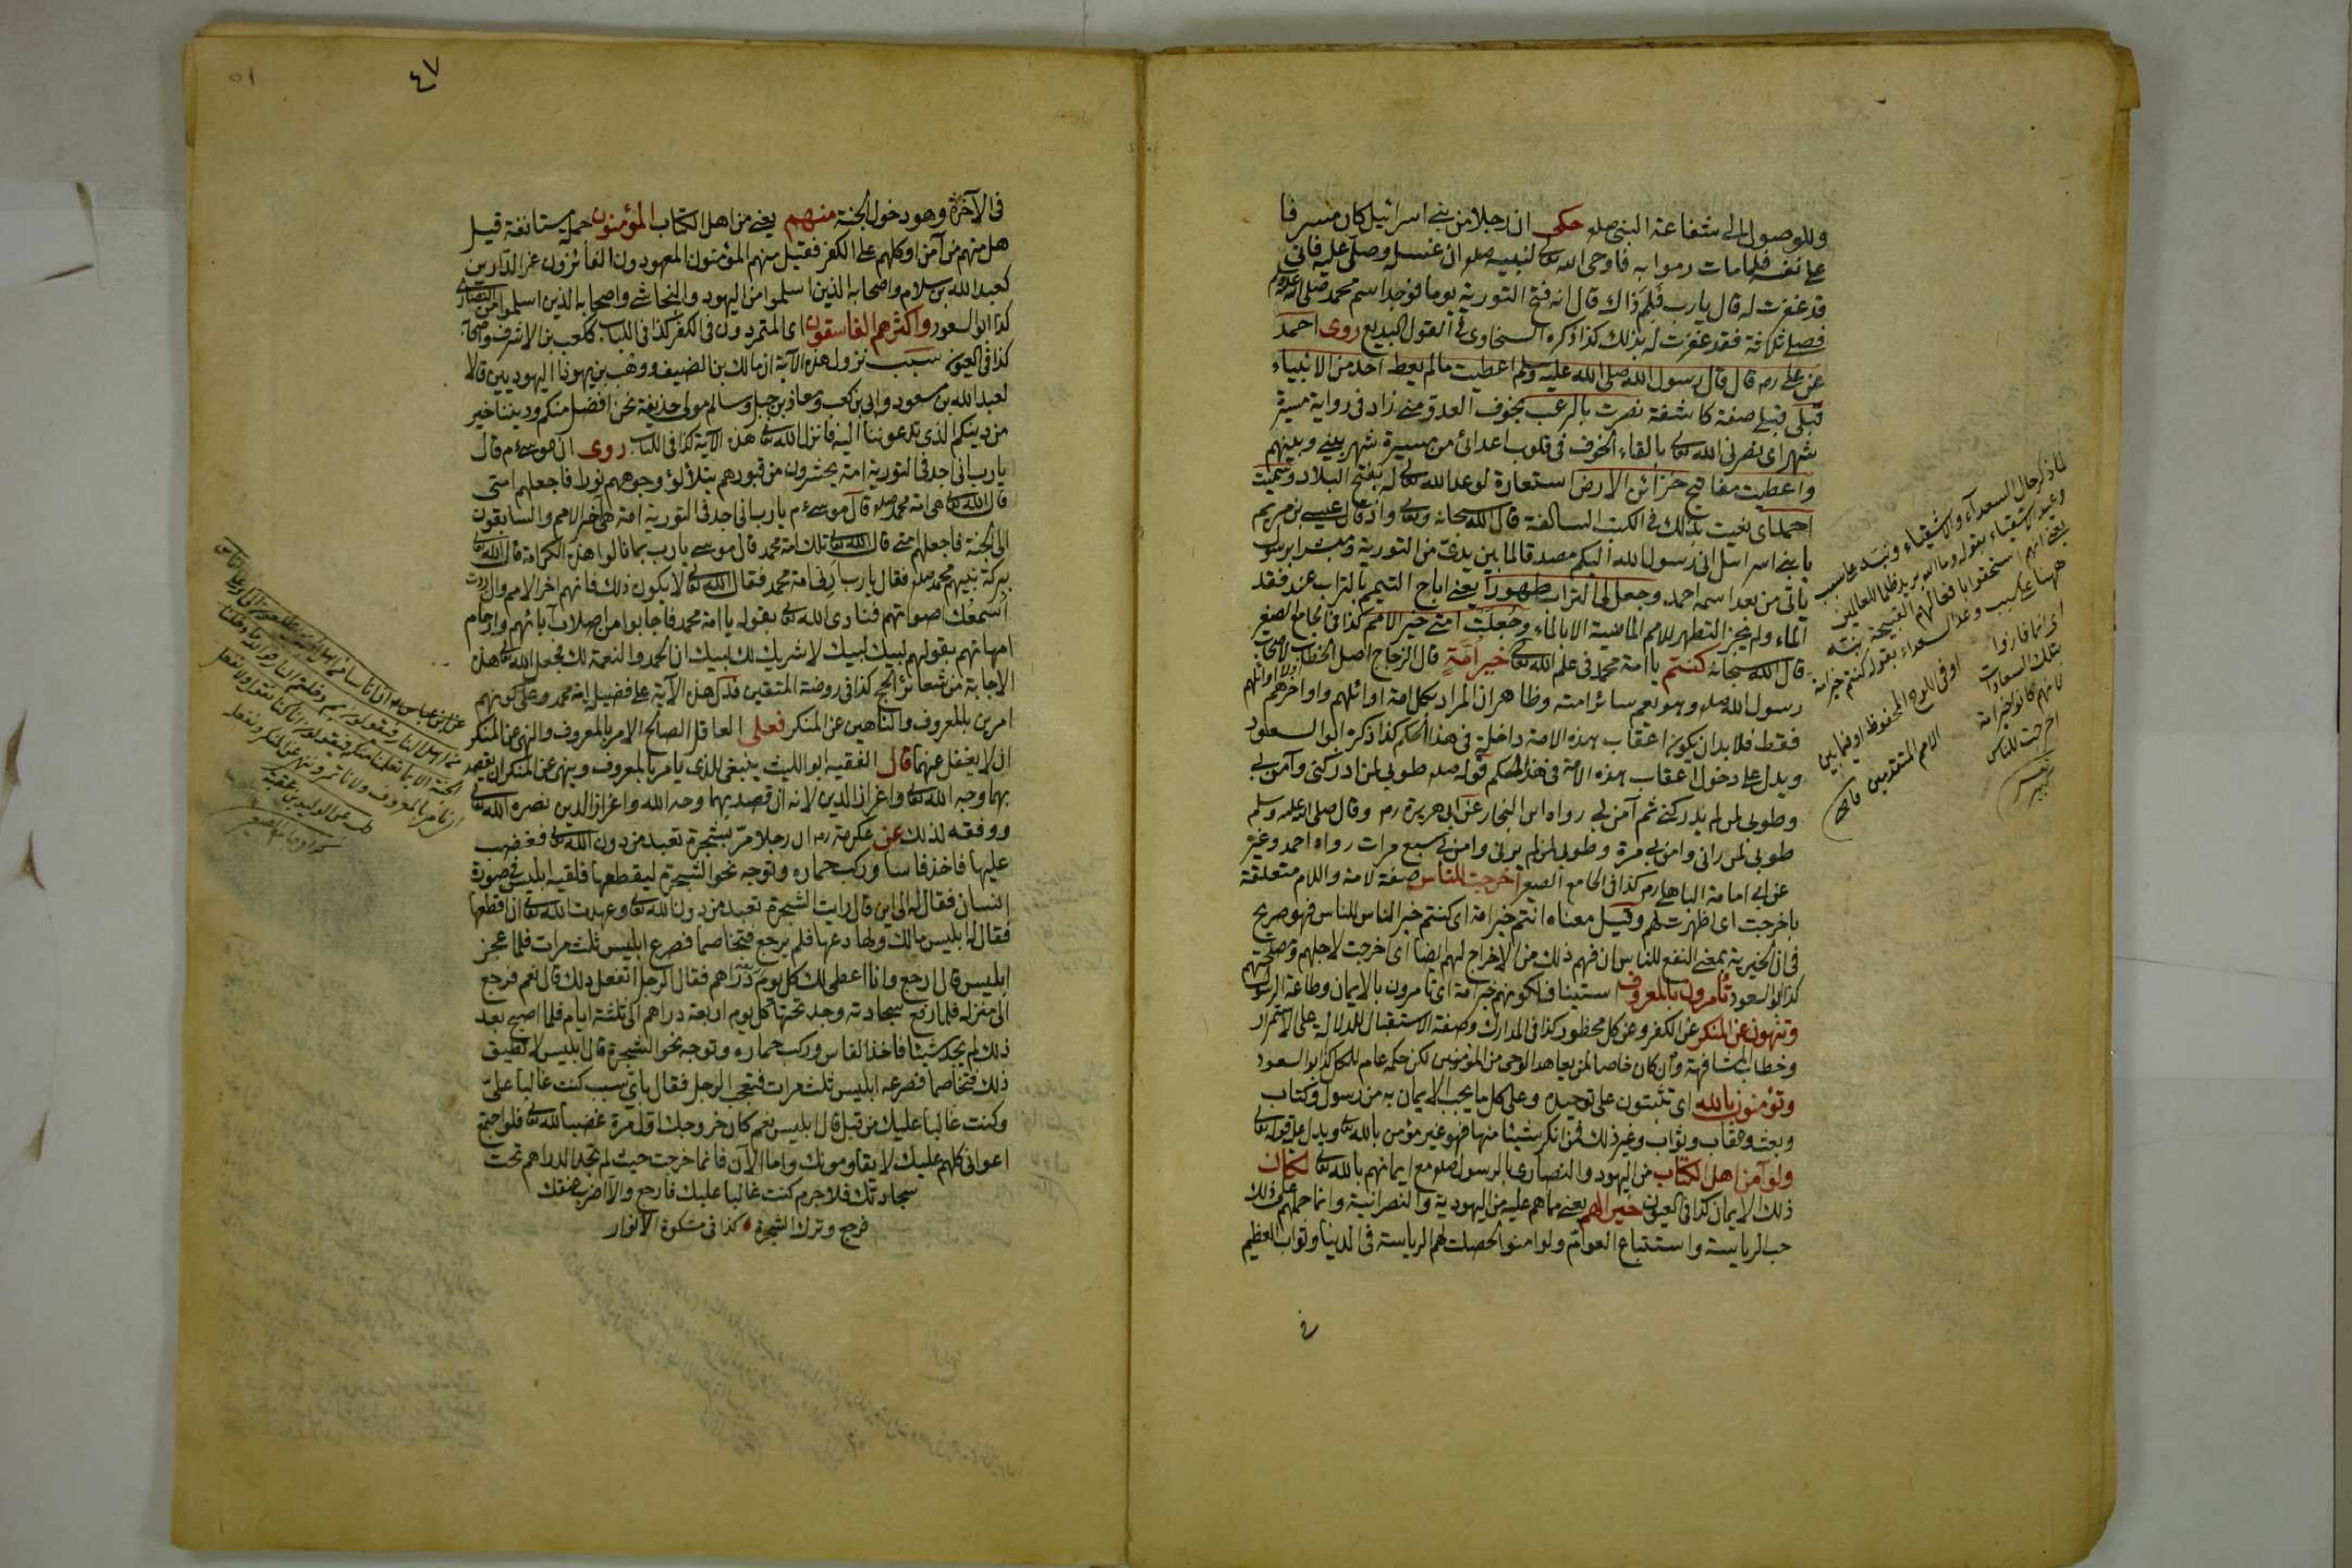 وللوصول الى شفاعة النبى صلعم حكى ان رجلا من بنى اسرائيل كان مسرفا
على نفسه فلما مات رموا به فاوحى الله تعالى لنبيه صلعم ان غسله وصل عليه فانى
قد غفرت له قال يارب فلم ذاك قال انه فتح التورية يوما فوجد اسم محمد صلى الله عليه وسلم
فصلى ثلاثة فقد غفرت له بذلك كذا ذكره السخاوى فى القول البديع روى احمد
عن على رم قال قال رسول الله صلى الله عليه وسلم اعطيت مالم يعط احد من الانبياء
قبلى قبلى صفة كاشفة نصرت بالرعب بخوف العدو منى زاد فى رواية مسيرة
شهر اى نصرنى الله تعالى بالقاء الخوف فى قلوب اعدائى من مسيرة شهر بينى وبينهم
واعطيت مفاتيح خزائن الارض استعارة لوعد الله تعالى له بفتح البلاد وسميت
احمد اى نعيت بذلك فى الكتب السالفة قال الله سبحانه وتعالى واذ قال عيسى بن مريم
يا بنى اسرائيل انى رسول الله اليكم مصدقا لما بين يدى من التورية ومبشرا برسول
ياتى من بعد اسمه احمد وجعل لى التراب طهورا يعنى اباح التيمم بالتراب عند فقد
الماء ولم يجز التطهر للامم الماضية الا بالماء وجعلت امتى خير الامم كذا فى الجامع الصغير
قال الله سبحانه كنتم يا امة محمد فى علم الله تعالى خير امة قال الزجاج اصل الخطاب لاصحاب
رسول الله صلعم وهو يعم سائر امته وظاهر ان المراد بكل امة اوائلهم واواخرهم لا اوائلهم
فقط فلا بد ان يكون اعقاب هذه الامة داخلة فى هذا الحكم كذا ذكره ابو السعود
ويدل على دخول اعقاب هذه الامة فى هذا الحكم قوله صلعم طوبى لمن ادركنى وآمن بى
وطوبى لمن لم يدركنى ثم آمن بى رواه ابن النجار عن ابى هريرة رم وقال صلى الله عليه وسلم
طوبى لمن رانى وامن بى مرة وطوبى لمن لم يرنى وامن بى سبع مرات رواه احمد وغيره
عن ابى امامة الباهلى رم كذا فى الجامع الصغير اخرجت للناس صفة لامة واللام متعلقة
باخرجت اى اظهرت لهم وقيل معناه انتم خير امة اى كنتم خير الناس للناس فهو صريح
فى ان الخيرية بمعنى النفع للناس ان فهم ذلك من الاخراج لهم ايضا اى اخرجت لاجلهم ومصلحتهم
كذا ابو السعود تأمرون بالمعروف استيناف لكونهم خير امة اى تامرون بالايمان وطاعة الرسول
وتنهون عن المنكر عن الكفر وعن كل محظور كذا فى المدارك وصفة الاستقبال للدلالة على الاستمرار
وخطاب المشافهة وان كان خاصا لمن يعاهد الوحى من المؤمنين لكن حكمه عام للكل كذا ابو السعود
وتؤمنون بالله اى تثبتون على توحيده وعلى كل ما يجب الايمان به من رسول وكتاب
وبعث وعقاب وثواب وغير ذلك فمن انكر شيئا منها فهو غير مؤمن بالله تعالى ويدل عليه قوله تعالى
ولو آمن اهل الكتاب من اليهود والنصارى بالرسول صلعم مع ايمانهم بالله تعالى لكان
ذلك الايمان كذا فى العيون خيرا لهم يعنى مما هم عليه من اليهودية والنصرانية وانما حملهم على ذلك
حب الرياسة واستتباع العوام ولو امنوا لحصلت لهم الرياسة فى الدنيا وثواب العظيم
لما ذكر حال السعدآء والاشقياء ونبه على سبب
وعيد الاشقياء بقوله وما الله يريد ظلما للعالمين
يعنى انهم استحقوا بافعالهم القبيحة نبه
ههنا على سبب وعد السعداء بقوله كنتم خير امة
اى انما فازوا
بتلك السعادات
لانهم كانوا خير امة
اخرجت للناس
او فى اللوح المحفوظ او فيما بين
الامم المتقدمين
٤٧
٥١
فى الآخرة وهو دخول الجنة منهم يعنى من اهل الكتاب المؤمنون جملة مستانفة قيل
هل منهم من آمن او كلهم على الكفر فقيل منهم المؤمنون المعهودون الفائزون عن الدارين
كعبد الله بن سلام واصحابه الذين اسلموا من اليهود والنجاشى واصحابه الذين اسلموا من النصارى
كذا ابو السعود واكثرهم الفاسقون اى المتمردون فى الكفر كذا فى اللباب ككعب بن الاشرف واصحابه
كذا فى العيون سبب نزول هذه الآية ان مالك بن الضيف ووهب بن يهودا اليهوديين قالا
لعبد الله بن مسعود وابى بن كعب ومعاذ بن جبل وسالم مولى حذيفة نحن افضل منكم وديننا خير
من دينكم الذى تدعوننا اليه فانزل الله تعالى هذه الآية كذا فى اللباب روى ان موسى عم قال
يارب انى اجد فى التورية امة يحشرون من قبورهم يتلألؤ وجوههم نورا فاجعلهم امتى
قال الله تعالى هى امة محمد صلعم قال موسى عم يارب انى اجد فى التورية امة هى آخر الامم والسابقون
الى الجنة فاجعلهم منى قال الله تعالى تلك امة محمد قال موسى يارب بما نالوا هذه الكرامة قال الله تعالى
ببركة نبيهم محمد صلعم فقال يارب ارنى امة محمد فقال الله تعالى لا يكون ذلك فانهم اخر الامم وان اردت
اسمعك اصواتهم فنادى الله تعالى بقوله يا امة محمد فاجابوا من اصلاب آبائهم وارحام
امهاتهم بقولهم لبيك لبيك لا شريك لك لبيك ان الحمد والنعمة لك فجعل الله تعالى هذه
الاجابة من شعائر الحج كذا فى روضة المتقين فدل هذه الآية على فضيلة امة محمد وعلى كونهم
امرين بالمعروف والناهين عن المنكر فعلى العاقل الصالح الامر بالمعروف والنهى عن المنكر
ان لا يغفل عنهما قال الفقيه ابو الليث ينبغى للذى يامر بالمعروف وينهى عن المنكر ان يقصد
بهما وجه الله تعالى واعزاز الدين لانه ان قصد بهما وجه الله واعزاز الدين نصره الله تعالى
ووفقه لذلك عن عكرمة رم ان رجلا مر بشجرة تعبد من دون الله تعالى فغضب
عليها فاخذ فاسا وركب حماره وتوجه نحو الشجرة ليقطعها فلقيه ابليس فى صورة
انسان فقال له الى اين قال رايت الشجرة تعبد من دون الله تعالى وعهدت الله تعالى ان اقطعها
فقال له ابليس مالك ولها دعها فلم يرجع فتخاصما فصرع ابليس ثلث مرات فلما عجز
ابليس قال ارجع وانا اعطى لك كل يوم دراهم فقال الرجل اتفعل ذلك قال نعم فرجع
الى منزله فلما رفع سجادته وجد تحتها كل يوم اربعة دراهم الى ثلثة ايام فلما اصبح بعد
ذلك لم يجد شيئا فاخذ الفاس وركب حماره وتوجه نحو الشجرة قال ابليس لا تطيق
ذلك فتخاصما فصرعه ابليس ثلث مرات فتعجب الرجل فقال باى سبب كنت غالبا على
وكنت غالبا عليك من قبل قال ابليس نعم كان خروجك اول مرة غضبا لله تعالى فلو اجتمع
اعوانى كلهم عليك لا يقاومونك واما الآن فانما خرجت حيث لم تجد الدراهم تحت
سجادتك فلا جرم كنت غالبا عليك فارجع والا اضرب عنقك
فرجع وترك الشجرة كذا فى مشكوة الانوار